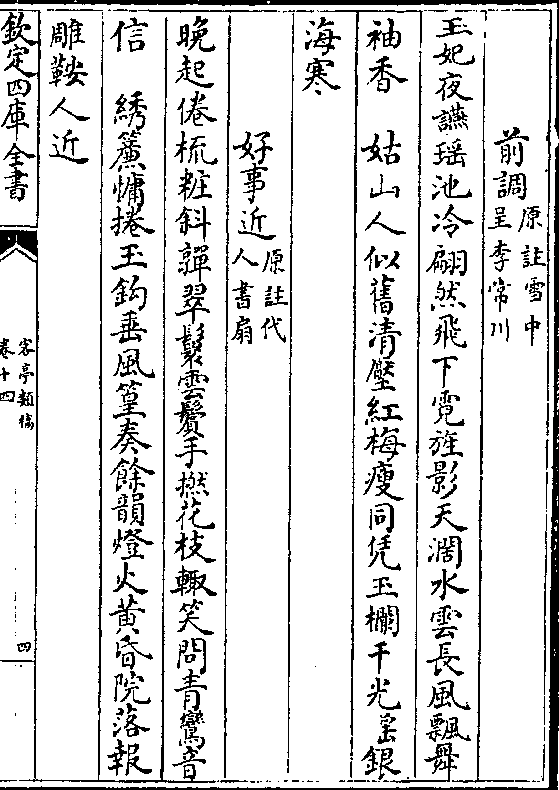 前調原註雪中
呈李常川
玉妃夜讌瑶池冷翩然飛下霓旌影天濶水雲長風飄舞
袖香　姑山人似舊清壓紅梅瘦同凭玉欄干光摇銀
海寒
好事近原註代
人書扇
晚起倦梳粧斜嚲翠鬟雲鬢手撚花枝輙笑問青鸞音
信　綉簾慵捲玉鈎垂風篁奏餘韻燈火黄昏院落報
雕鞍人近
欽定四庫全書
客亭類稿
卷十四
四